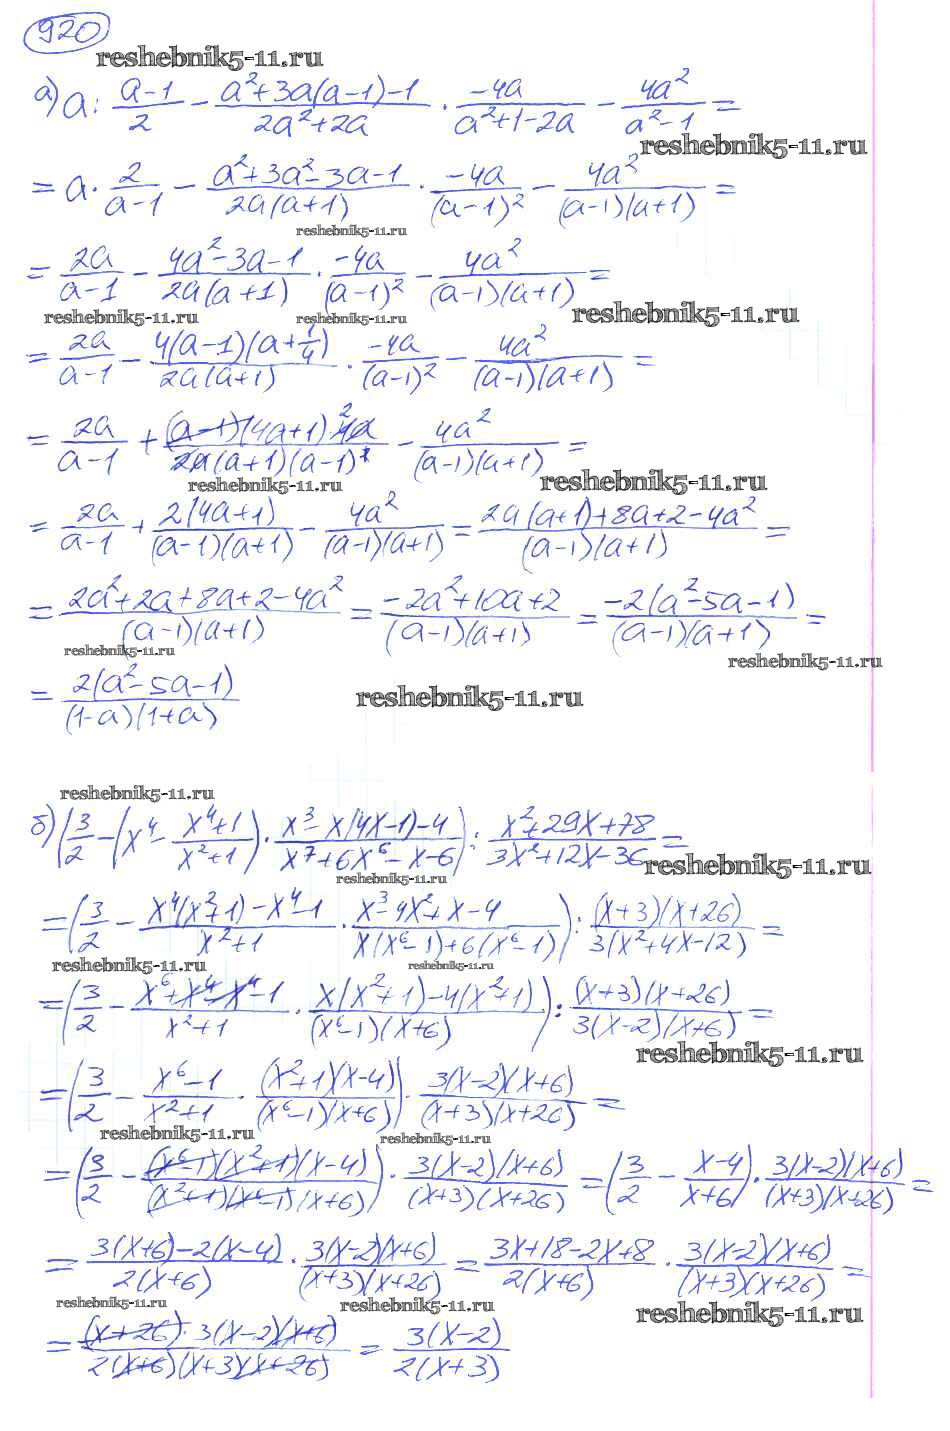 920
reshebnik5-11.ru
а) a : (a-1)/2 - (a²+3a(a-1)-1)/(2a²+2a) · (-4a)/(a²+1-2a) - 4a²/(a²-1) =
reshebnik5-11.ru
= a · 2/(a-1) - (a²+3a²-3a-1)/(2a(a+1)) · (-4a)/((a-1)²) - 4a²/((a-1)(a+1)) =
reshebnik5-11.ru
= 2a/(a-1) - (4a²-3a-1)/(2a(a+1)) · (-4a)/((a-1)²) - 4a²/((a-1)(a+1)) =
reshebnik5-11.ru reshebnik5-11.ru reshebnik5-11.ru
= 2a/(a-1) - (4(a-1)(a+1/4))/(2a(a+1)) · (-4a)/((a-1)²) - 4a²/((a-1)(a+1)) =
= 2a/(a-1) + ((a-1)(4a+1) ²4a)/(2a(a+1)(a-1)²) - 4a²/((a-1)(a+1)) =
reshebnik5-11.ru reshebnik5-11.ru
= 2a/(a-1) + 2(4a+1)/((a-1)(a+1)) - 4a²/((a-1)(a+1)) = (2a(a+1)+8a+2-4a²)/((a-1)(a+1)) =
= (2a²+2a+8a+2-4a²)/((a-1)(a+1)) = (-2a²+10a+2)/((a-1)(a+1)) = (-2(a²-5a-1))/((a-1)(a+1)) =
reshebnik5-11.ru reshebnik5-11.ru
= 2(a²-5a-1)/((1-a)(1+a))
reshebnik5-11.ru
reshebnik5-11.ru
б) (3/2 - (x⁴ - (x⁴+1)/(x²+1)) · (x³-x(4x-1)-4)/(x⁷+6x⁶-x-6)) : (x²+29x+78)/(3x²+12x-36) =
reshebnik5-11.ru reshebnik5-11.ru
= (3/2 - (x⁴(x²+1)-x⁴-1)/(x²+1) · (x³-4x²+x-4)/(x(x⁶-1)+6(x⁶-1))) : ((x+3)(x+26))/(3(x²+4x-12)) =
reshebnik5-11.ru reshebnik5-11.ru
= (3/2 - (x⁶+x⁴-x⁴-1)/(x²+1) · (x(x²+1)-4(x²+1))/((x⁶-1)(x+6))) : ((x+3)(x+26))/(3(x-2)(x+6)) =
reshebnik5-11.ru
= (3/2 - (x⁶-1)/(x²+1) · ((x²+1)(x-4))/((x⁶-1)(x+6))) · (3(x-2)(x+6))/((x+3)(x+26)) =
reshebnik5-11.ru reshebnik5-11.ru
= (3/2 - ((x⁶-1)(x²+1)(x-4))/((x²+1)(x⁶-1)(x+6))) · (3(x-2)(x+6))/((x+3)(x+26)) = (3/2 - (x-4)/(x+6)) · (3(x-2)(x+6))/((x+3)(x+26)) =
= (3(x+6)-2(x-4))/(2(x+6)) · (3(x-2)(x+6))/((x+3)(x+26)) = (3x+18-2x+8)/(2(x+6)) · (3(x-2)(x+6))/((x+3)(x+26)) =
reshebnik5-11.ru reshebnik5-11.ru reshebnik5-11.ru
= ((x+26) · 3(x-2)(x+6))/(2(x+6)(x+3)(x+26)) = 3(x-2)/(2(x+3))